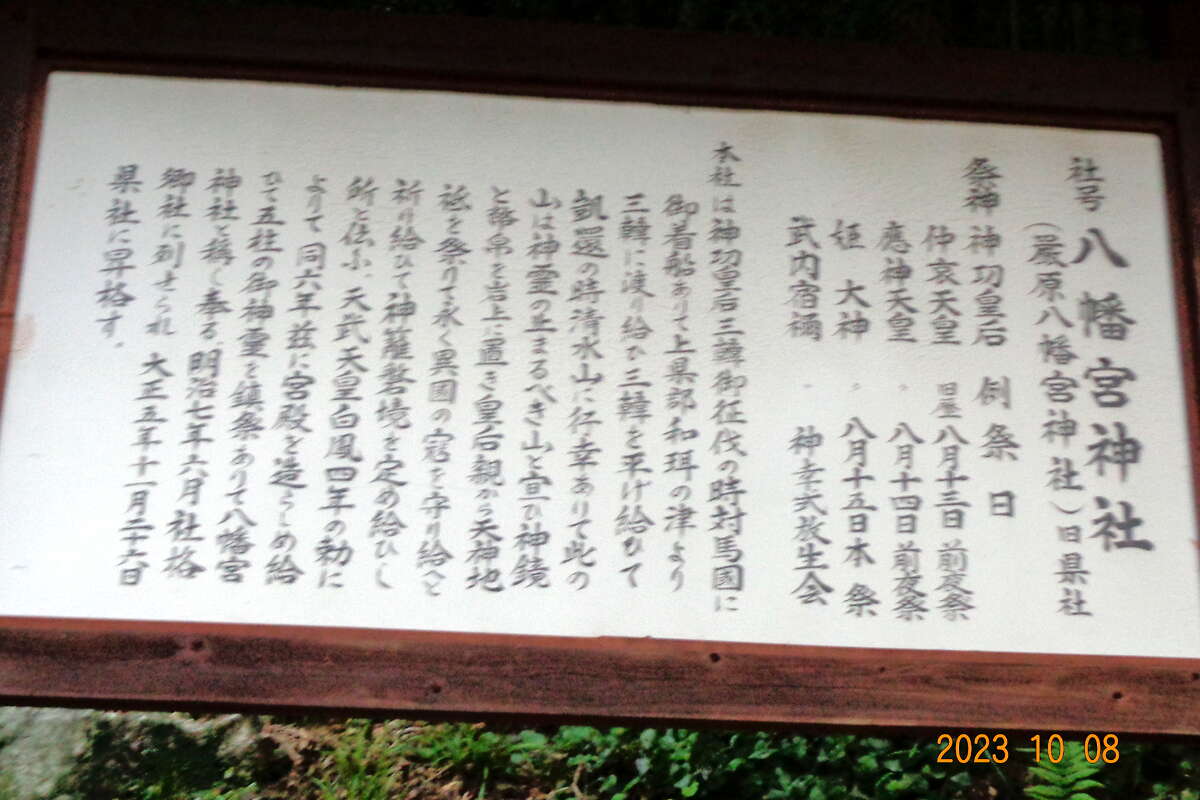 社号 八幡宮神社
(厳原八幡宮神社)旧県社
祭神 神功皇后 例祭日
仲哀天皇 旧暦 八月十三日 前夜祭
應神天皇 〃 八月十四日 前夜祭
姫大神 〃 八月十五日 本祭
武内宿禰 〃 神幸式放生会
本社は神功皇后三韓御征伐の時対馬國に
御着船ありて上県郡和珥の津より
三韓に渡り給ひ三韓を平げ給ひて
凱還の時清水山に行幸ありて此の
山は神霊の止まるべき山と宣ひ神鏡
と幣帛を岩上に置き皇后親から天神地
祗を祭りて永く異國の寇を守り給へと
祈り給ひて神籬磐境を定め給ひし
所と伝ふ、天武天皇白鳳四年の勅に
よりて同六年茲に宮殿を造らしめ給
ひて五社の御神霊を鎮祭ありて八幡宮
神社と稱し奉る 明治七年六月社格
郷社に列せられ 大正五年十一月二十六日
県社に昇格す。
2023 10 08